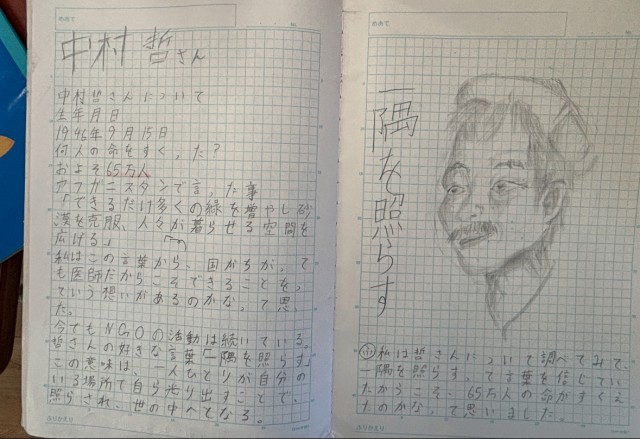 めあて
中村 哲さん
中村哲さんについて
生年月日
1946年9月15日
何人の命をすくった?
およそ65万人
アフガニスタンで言った事
「できるだけ多くの緑を増やし砂
漠を克服、人々が暮らせる空間を
広げる」
私はこの言葉から、国がちがって
も医師だからこそできることを、
という想いがあるのかなって思っ
た。
今でもNGOの活動は続いている。
哲さんの好きな言葉「一隅を照らす」
この意味は、一人ひとりが自分の
いる場所で自ら光り出すことで、
照らされ、世の中へてなる。
ふりかえり
めあて
一隅を照らす
私は哲さんについて調べてみて、
一隅を照らすって言葉を信じてい
たからこそ、65万人の命がすくえ
たのかなって思いました。
ふりかえり